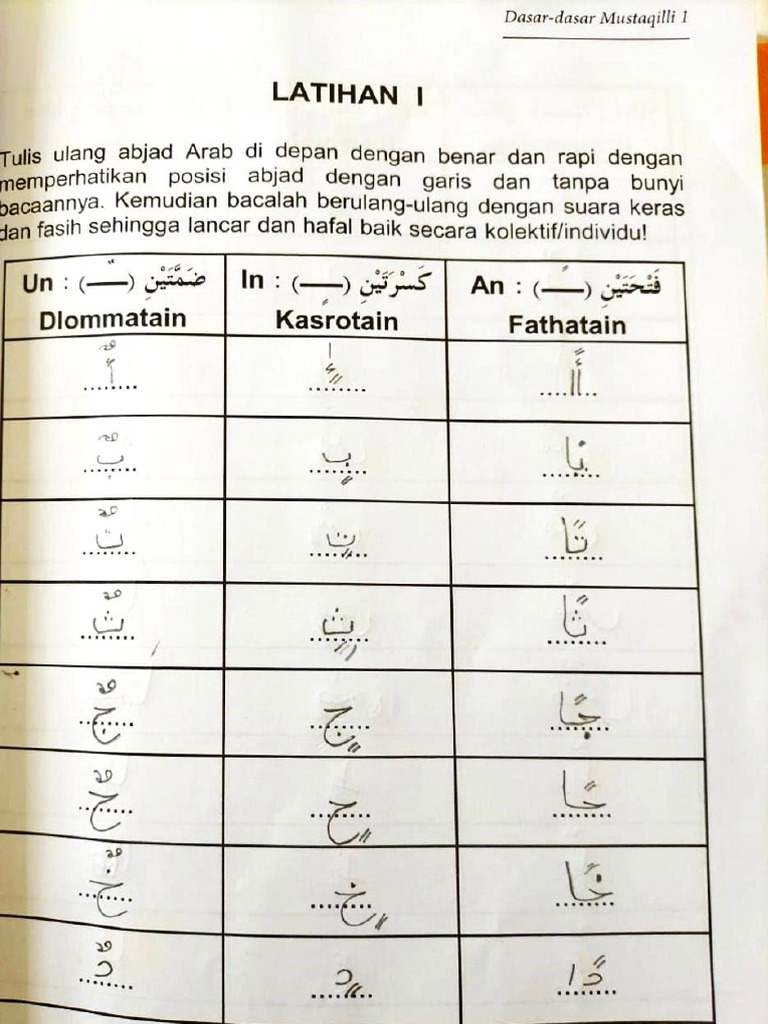 Dasar-dasar Mustaqilli 1
LATIHAN I
Tulis ulang abjad Arab di depan dengan benar dan rapi dengan
memperhatikan posisi abjad dengan garis dan tanpa bunyi
bacaannya. Kemudian bacalah berulang-ulang dengan suara keras
dan fasih sehingga lancar dan hafal baik secara kolektif/individu!
فَتْحَتَيْنِ (ــًـ) : An كَسْرَتَيْنِ (ــٍـ) : In ضَمَّتَيْنِ (ــٌـ) : Un
Fathatain Kasrotain Dlommatain
أً أٍ أٌ
بًا بٍ بٌ
تًا تٍ تٌ
ثًا ثٍ ثٌ
جًا جٍ جٌ
حًا حٍ حٌ
خًا خٍ خٌ
دًا دٍ دٌ